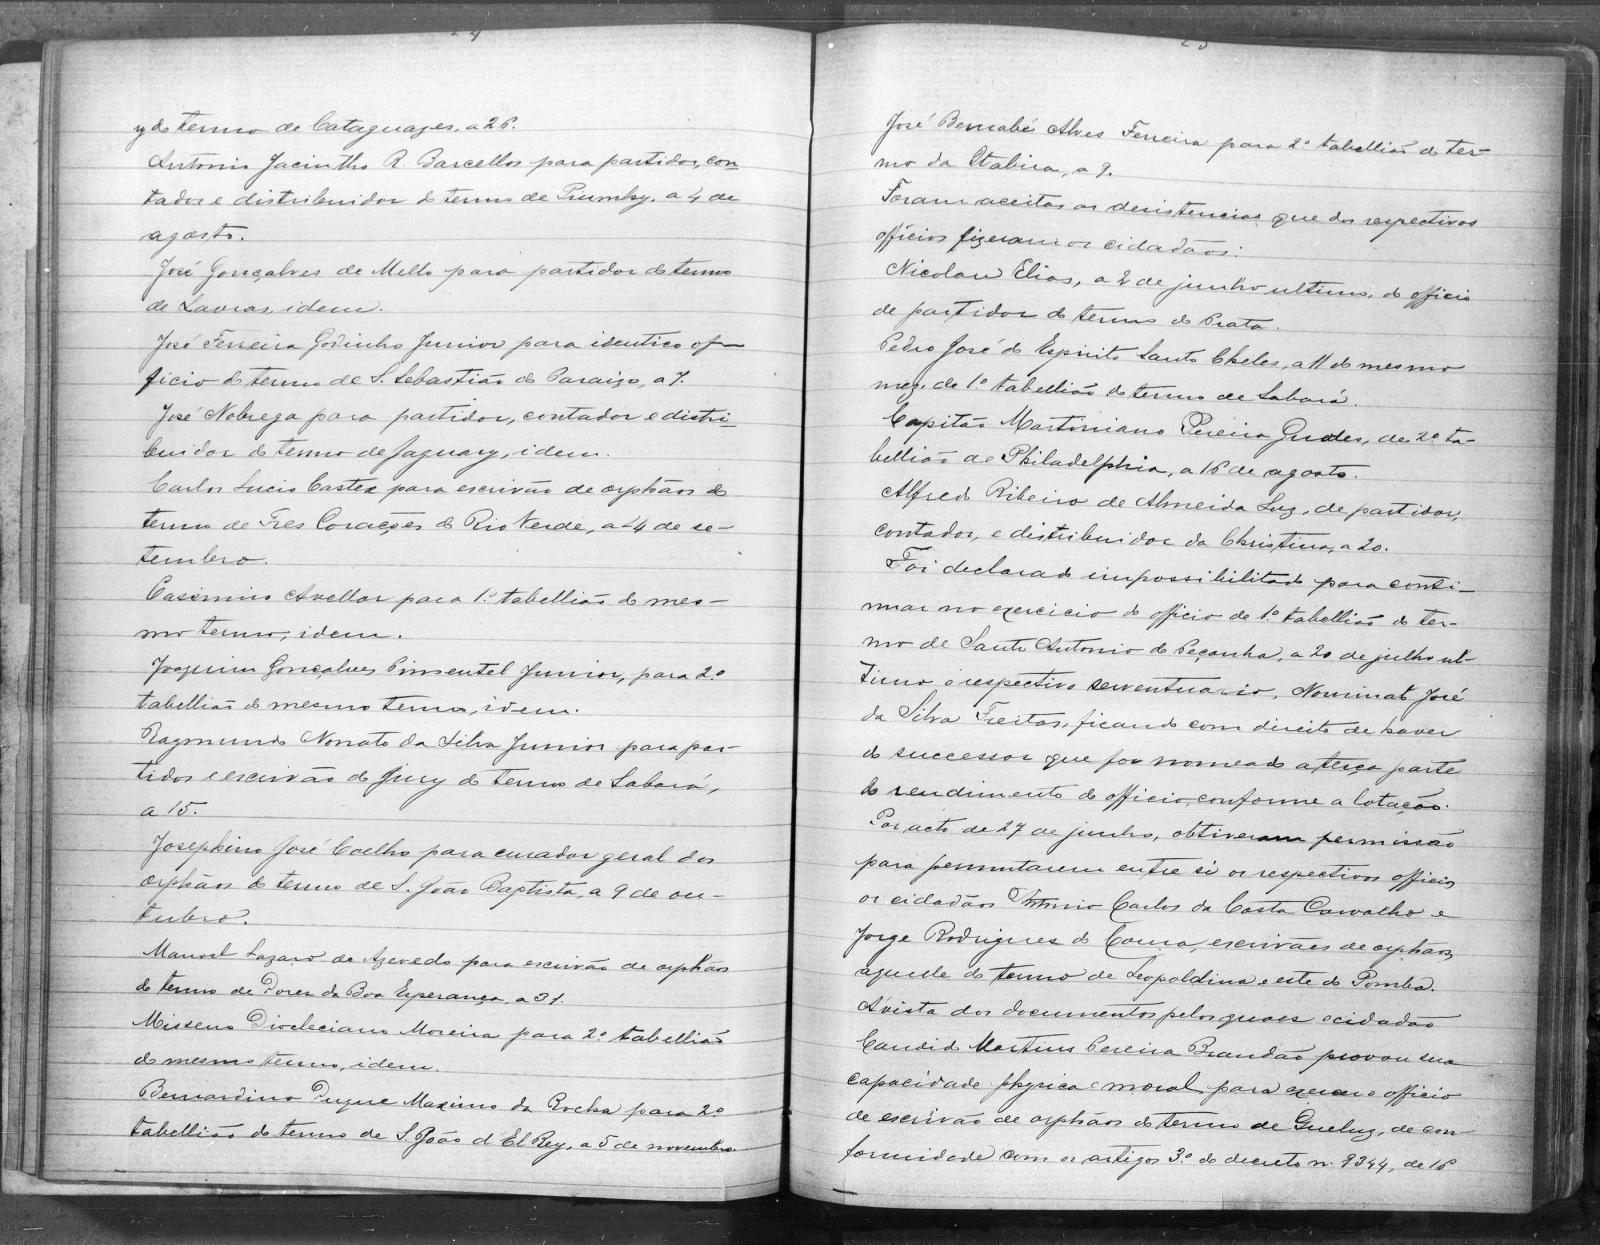 24
y do termo de Cataguazes, a 26.
Antonio Jacintho R. Barcellos para partidor, con-
tador e distribuidor do termo de Piumhy, a 4 de
agosto.
José Gonçalves de Mello para partidor do termo
de Lavras, idem.
José Ferreira Godinho Junior para identico of-
ficio do termo de S. Sebastião do Paraizo, a 7.
José Nobrega para partidor, contador e distri-
buidor do termo de Jaguary, idem.
Carlos Lucio Castex para escrivão de orphãos do
termo de Tres Corações do Rio Verde, a 4 de se-
tembro.
Casimiro Avellar para 1.º tabellião do mes-
mo termo, idem.
Joaquim Gonçalves Pimentel Junior, para 2.º
tabellião do mesmo termo, idem.
Raymundo Nonato da Silva Junior para par-
tidor e escrivão do jury do termo de Sabará,
a 15.
Josephino José Coelho para curador geral dos
orphãos do termo de S. João Baptista, a 9 de ou-
tubro.
Manoel Lazaro de Azevedo para escrivão de orphãos
do termo de Dores da Boa Esperança, a 31.
Misseno Diocleciano Moreira para 2.º tabellião
do mesmo termo, idem.
Bernardino Duque Maximo da Rocha para 2.º
tabellião do termo de S. João d'El Rey, a 5 de novembro
25
José Bernabé Alves Ferreira para 2.º tabellião do ter-
mo da Itabira, a 9.
Foram aceitas as desistencias que dos respectivos
officios fizeram os cidadãos:
Nicolau Elias, a 2 de junho ultimo, do officio
de partidor do termo do Prata.
Pedro José do Espirito Santo Cheles, a 11 do mesmo
mez, de 1.º tabellião do termo de Sabará.
Capitão Martiniano Pereira Guedes, de 2.º ta-
bellião de Philadelphia, a 16 de agosto.
Alfredo Ribeiro de Almeida Luz, de partidor,
contador, e distribuidor da Christina, a 20.
Foi declarado impossibilitado para conti-
nuar no exercicio do officio de 1.º tabellião do ter-
mo de Santo Antonio do Peçanha, a 20 de julho ul-
timo o respectivo serventuario, Nominato José
da Silva Freitas, ficando com direito de haver
do successor que for nomeado a terça parte
do rendimento do officio, conforme a lotação.
Por acto de 27 de junho, obtiveram permissão
para permutarem entre si os respectivos officios
os cidadãos Antonio Carlos da Costa Carvalho e
Jorge Rodrigues de Moura, escrivães de orphãos,
aquelle do termo de Leopoldina e este do Pomba.
Á vista dos documentos pelos quaes o cidadão
Candido Martins Pereira Brandão provou sua
capacidade physica e moral para exercer o officio
de escrivão de orphãos do termo de Queluz, de con-
formidade com os artigos 3.º do decreto n. 9344, de 16